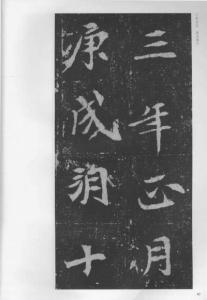 三年正月
庚戌朔十